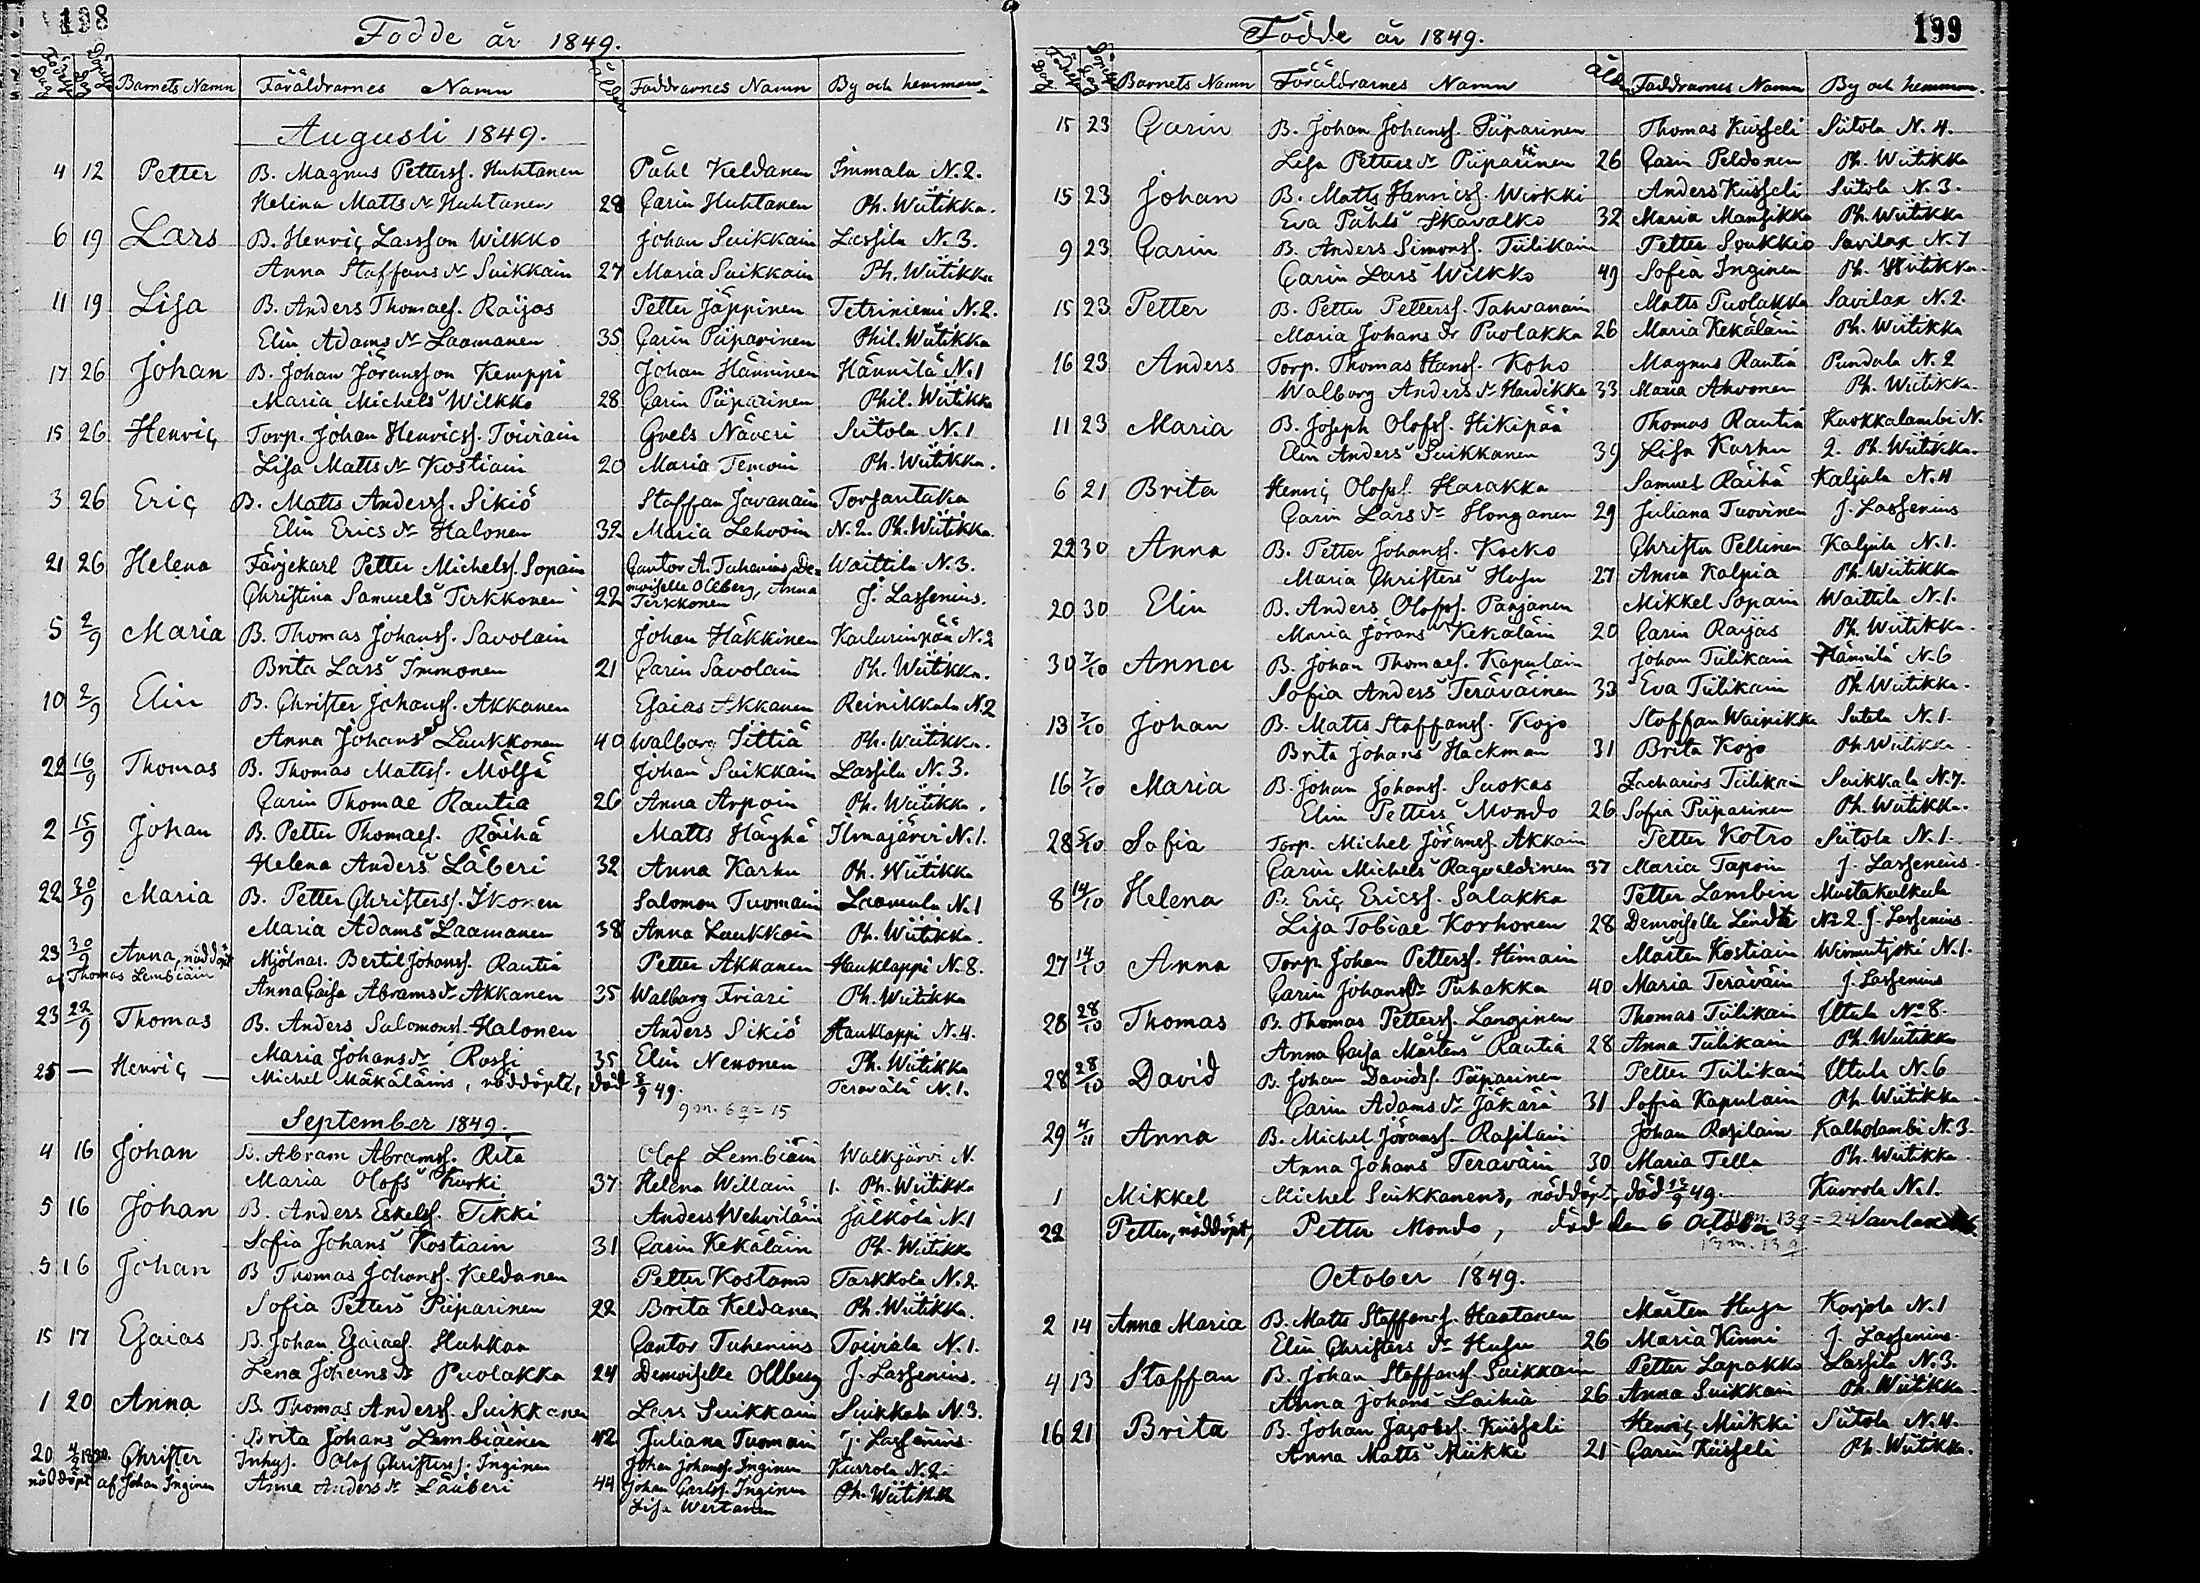 198
Födde år 1849.
Födelse Dag Döpelse Dag Barnets Namn Föräldrarnes Namn Ålder Faddrarnes Namn By och hemman.
Augusti 1849.
4 12 Petter B. Magnus Petterss. Huhtanen Påhl Keldanen Immala N. 2.
Helena Matts Dr Huhtanen 28 Carin Huhtanen Ph. Wiitikka.
6 19 Lars B. Henriç Larsson Wilkko Johan Suikkain Lassila N. 3.
Anna Staffans Dr Suikkain 27 Maria Suikkain Ph. Wiitikka
11 19 Lisa B. Anders Thomaes. Raijas Petter Jäppinen Tetriniemi N. 2.
Elin Adams Dr Laamanen 35 Carin Piiparinen Phil. Wiitikka
17 26 Johan B. Johan Jöransson Kemppi Johan Hänninen Hännilä N. 1
Maria Michels Wilkko 28 Carin Piiparinen Phil. Wiitikka
15 26 Henriç Torp. Johan Henricss. Toiviain Grels Näveri Siitola N. 1
Lisa Matts Dr Kostiain 20 Maria Temoin Ph. Wiitikka.
3 26 Eriç B. Matts Anderss. Sikiö Staffan Javanain Torsantaka
Elin Erics Dr Halonen 32 Maria Lehvoin N. 2. Ph. Wiitikka.
21 26 Helena Färjekarl Petter Michelss. Sopain Cantor A. Tuhenius, De=
moiselle Olberg, Anna Waittila N. 3.
Christina Samuels Tirkkonen 22 Tirkkonen J. Lassenius.
5 2/9 Maria B. Thomas Johanss. Savolain Johan Häkkinen Kailurinpää N. 2
Brita Lars Immonen 21 Carin Savolain Ph. Wiitikka.
10 2/9 Elin B. Christer Johanss. Akkanen Esaias Akkanen Reinikkala N. 2
Anna Johans Laukkonen 40 Walborg Tittiä Ph. Wiitikka.
22 16/9 Thomas B. Thomas Mattss. Mölsä Johan Suikkain Lassila N. 3.
Carin Thomae Rautia 26 Anna Arpoin Ph. Wiitikka.
2 15/9 Johan B. Petter Thomaes. Räihä Matts Häyhä Ilmajärvi N. 1.
Helena Anders Läberi 32 Anna Karhu Ph. Wiitikka
22 30/9 Maria B. Petter Christerss. Ikonen Salomon Tuomain Laamala N. 1
Maria Adams Laamanen 38 Anna Laukkoin Ph. Wiitikka.
23 30/9 Anna, nöddöpt Mjölnar. Bertil Johanss. Rautia Petter Akkanen Hauklappi N. 8.
af Thomas Lembiäin
Anna Caisa Abrams Dr Akkanen 35 Walborg Friari Ph. Wiitikka
23 22/9 Thomas B. Anders Salomonss. Halonen Anders Sikiö Hauklappi N. 4.
Maria Johans Dr Rossi 35 Elin Nenonen Ph. Wiitikka
25 — Henriç — Michel Mäkäläins, nöddöpt, död 2/9 49. Terävälä N. 1.
9 m. 6 q = 15
September 1849.
4 16 Johan B. Abram Abramss. Rita Olof Lembiäin Walkjärvi N.
Maria Olofs Kurki 37 Helena Willain 1. Ph. Wiitikka
5 16 Johan B. Anders Eskelss. Tikki Anders Wehviläin Jälkölä N. 1
Sofia Johans Kostiain 31 Carin Kekäläin Ph. Wiitikka
5 16 Johan B Thomas Johanss. Keldanen Petter Kostamo Tarkkola N. 2.
Sofia Petters Piiparinen 22 Brita Keldanen Ph. Wiitikka.
15 17 Esaias B. Johan Esaiaes. Huhkan Cantor Tuhenius Toiviala N. 1.
Lena Johans Dr Puolakka 24 Demoiselle Ollberg J. Lassenius.
1 20 Anna B. Thomas Anderss. Suikkanen Lars Suikkain Suikkala N. 3.
Brita Johans Lembiäinen 42 Juliana Tuomain J. Lassenius.
20 Christer Inhys. Olof Christerss. Inginen Johan Johanss. Inginen Kurrola N. 2.
nöddöpt af Johan Inginen Anna Anders Dr Läuberi 44 Johan Carlss. Inginen Ph. Wiitikka
Lisa Wertanen
199
Födde år 1849.
Födelse Dag Döpelse Dag Barnets Namn Föräldrarnes Namn Ålder Faddrarnes Namn By och hemman.
15 23 Carin B. Johan Johanss. Piiparinen Thomas Kiisseli Siitola N. 4.
Lisa Petters Dr Piiparinen 26 Carin Peldonen Ph. Wiitikka
15 23 Johan B. Matts Hannicss. Wirkki Anders Kiisseli Siitola N. 3.
Eva Påhls Skavalko 32 Maria Mansikka Ph. Wiitikka
9 23 Carin B. Anders Simonss. Tiilikain Petter Soukkio Savilax N. 7
Carin Lars Wilkko 49 Sofia Inginen Ph. Wiitikka.
15 23 Petter B. Petter Petterss. Tahvanain Matts Puolakka Savilax N. 2.
Maria Johans Dr Puolakka 26 Maria Kekäläin Ph. Wiitikka
16 23 Anders Torp. Thomas Hanss. Koho Magnus Rautia Pundala N. 2
Walborg Anders Dr Hardikka 33 Maria Ahvonen Ph. Wiitikka.
11 23 Maria B. Joseph Olofss. Hikipää Thomas Rautia Kuokkalambi N.
Elin Anders Suikkanen 39 Lisa Karhu 2. Ph. Wiitikka.
6 21 Brita Henriç Olofss. Harakka Samuel Räihä Kaljula N. 4
Carin Lars Dr Honganen 29 Juliana Tuovinen J. Lassenius
22 30 Anna B. Petter Johanss. Kocko Christer Pellinen Kaljula N. 1.
Maria Christers Husu 27 Anna Kalpia Ph. Wiitikka
20 30 Elin B. Anders Olofss. Parjanen Mikkel Sopain Waittila N. 1.
Maria Jörans Kekäläin 20 Carin Raijas Ph. Wiitikka.
30 7/10 Anna B. Johan Thomaes. Kapulain Johan Tiilikain Hännilä N. 6
Sofia Anders Teräväinen 33 Eva Tiilikain Ph. Wiitikka.
13 7/10 Johan B. Matts Staffanss. Kojo Staffan Wainikka Siitola N. 1.
Brita Johans Hackman 31 Brita Kojo Ph. Wiitikka
16 7/10 Maria B. Johan Johanss. Suokas Zacharias Tiilikain Suikkala N. 7.
Elin Petters Mondo 26 Sofia Piiparinen Ph. Wiitikka.
28 5/10 Sofia Torp. Michel Jöranss. Akkain Petter Kotro Siitola N. 1.
Carin Michels Ragvaldinen 37 Maria Tapoin J. Lassenius.
8 14/10 Helena B. Eriç Ericss. Salakka Petter Lamberi Mustakulkula
Lisa Tobiae Korhonen 28 Demoiselle Lindh N. 2. J. Lassenius.
27 14/10 Anna Torp. Johan Petterss. Himain Mårten Kostiain N. 1.
Carin Johans Dr Puhakka 40 Maria Teräväin J. Lassenius
28 28/10 Thomas B. Thomas Petterss. Langinen Thomas Tiilikain Utula No 8.
Anna Caisa Mårtens Rautia 28 Anna Tiilikain Ph. Wiitikka
28 28/10 David B. Johan Davidss. Piiparinen Petter Tiilikain Utula N. 6
Carin Adams Dr Jäkärä 31 Sofia Kapulain Ph. Wiitikka.
29 4/11 Anna B. Michel Jöranss. Rasilain Johan Rasilain Kalholambi N. 3
Anna Johans Teräväin 30 Maria Tella Ph. Wiitikka.
1 Mikkel Michel Suikkanens, nöddöpt, död 13/9 49. Kurrola N. 1.
22 Petter, nöddöpt, Petter Mondo, död den 6 October 11 m. 13 q = 24 Savilax
13 m. 13 q
October 1849.
2 14 Anna Maria B. Matts Staffanss. Haatanen Mårten Husu Karjola N. 1
Elin Christers Dr Husu 26 Maria Kinni J. Lassenius.
4 13 Staffan B. Johan Staffanss. Suikkain Petter Lapakko Lassila N. 3.
Anna Johans Laihia 26 Anna Suikkain Ph. Wiitikka.
16 21 Brita B. Johan Jacobss. Kiisseli Henriç Miikki Siitola N. 4.
Anna Matts Miikki 21 Carin Kiisseli Ph. Wiitikka.